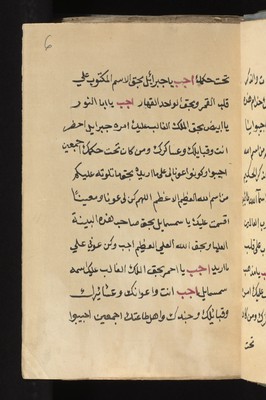 ٦
تحت حكمك اجب يا جبرائيل بحق الاسم المكتوب على
قلب القمر وبحق الواحد القهار اجب يا ابا النور
يا ابيض بحق الملك الغالب عليك امره جبرايل احضر
انت وقبايلك وعساكرك ومن كان تحت حكمك اجمعين
اجيبوا وكونوا عونا لى على ما اريد بحق ما تلوته عليكم
من اسم الله العظيم الاعظم اللهم كن لى عونا ومعينا
اقسمت عليك يا سمسمايل بحق صاحب هذه البينة
العليا وبحق الله العلى العظيم اجب وكن عونا لى على
ما اريد اجب يا احمر بحق الملك الغالب عليك اسمه
سمسمايل اجب انت واعوانك وعشائرك
وقبائلك وجندك واهل طاعتك اجمعين اجيبوا